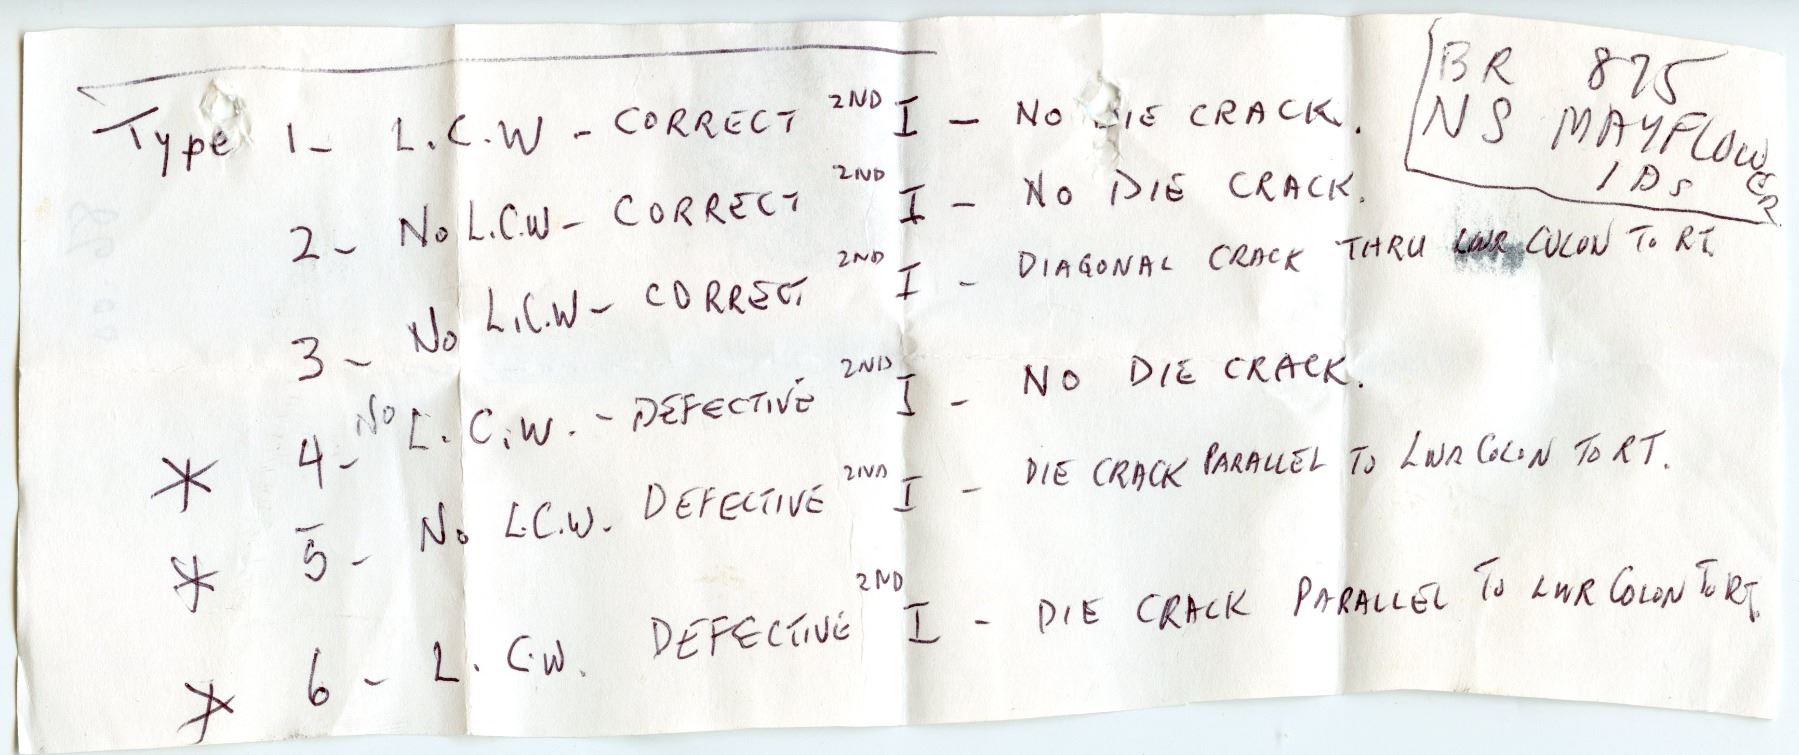 BR 875
NS MAYFLOWER
IDs
Type 1- L.C.W - CORRECT 2ND I - NO DIE CRACK.
2- No L.C.W - CORRECT 2ND I - NO DIE CRACK.
3- No L.C.W - CORRECT 2ND I - DIAGONAL CRACK THRU LWR COLON To RT.
* 4- No L.C.W. - DEFECTIVE 2ND I - NO DIE CRACK.
* 5- No L.C.W. DEFECTIVE 2ND I - DIE CRACK PARALLEL To LWR COLON To RT.
* 6- L.C.W. DEFECTIVE 2ND I - DIE CRACK PARALLEL To LWR COLON To RT.